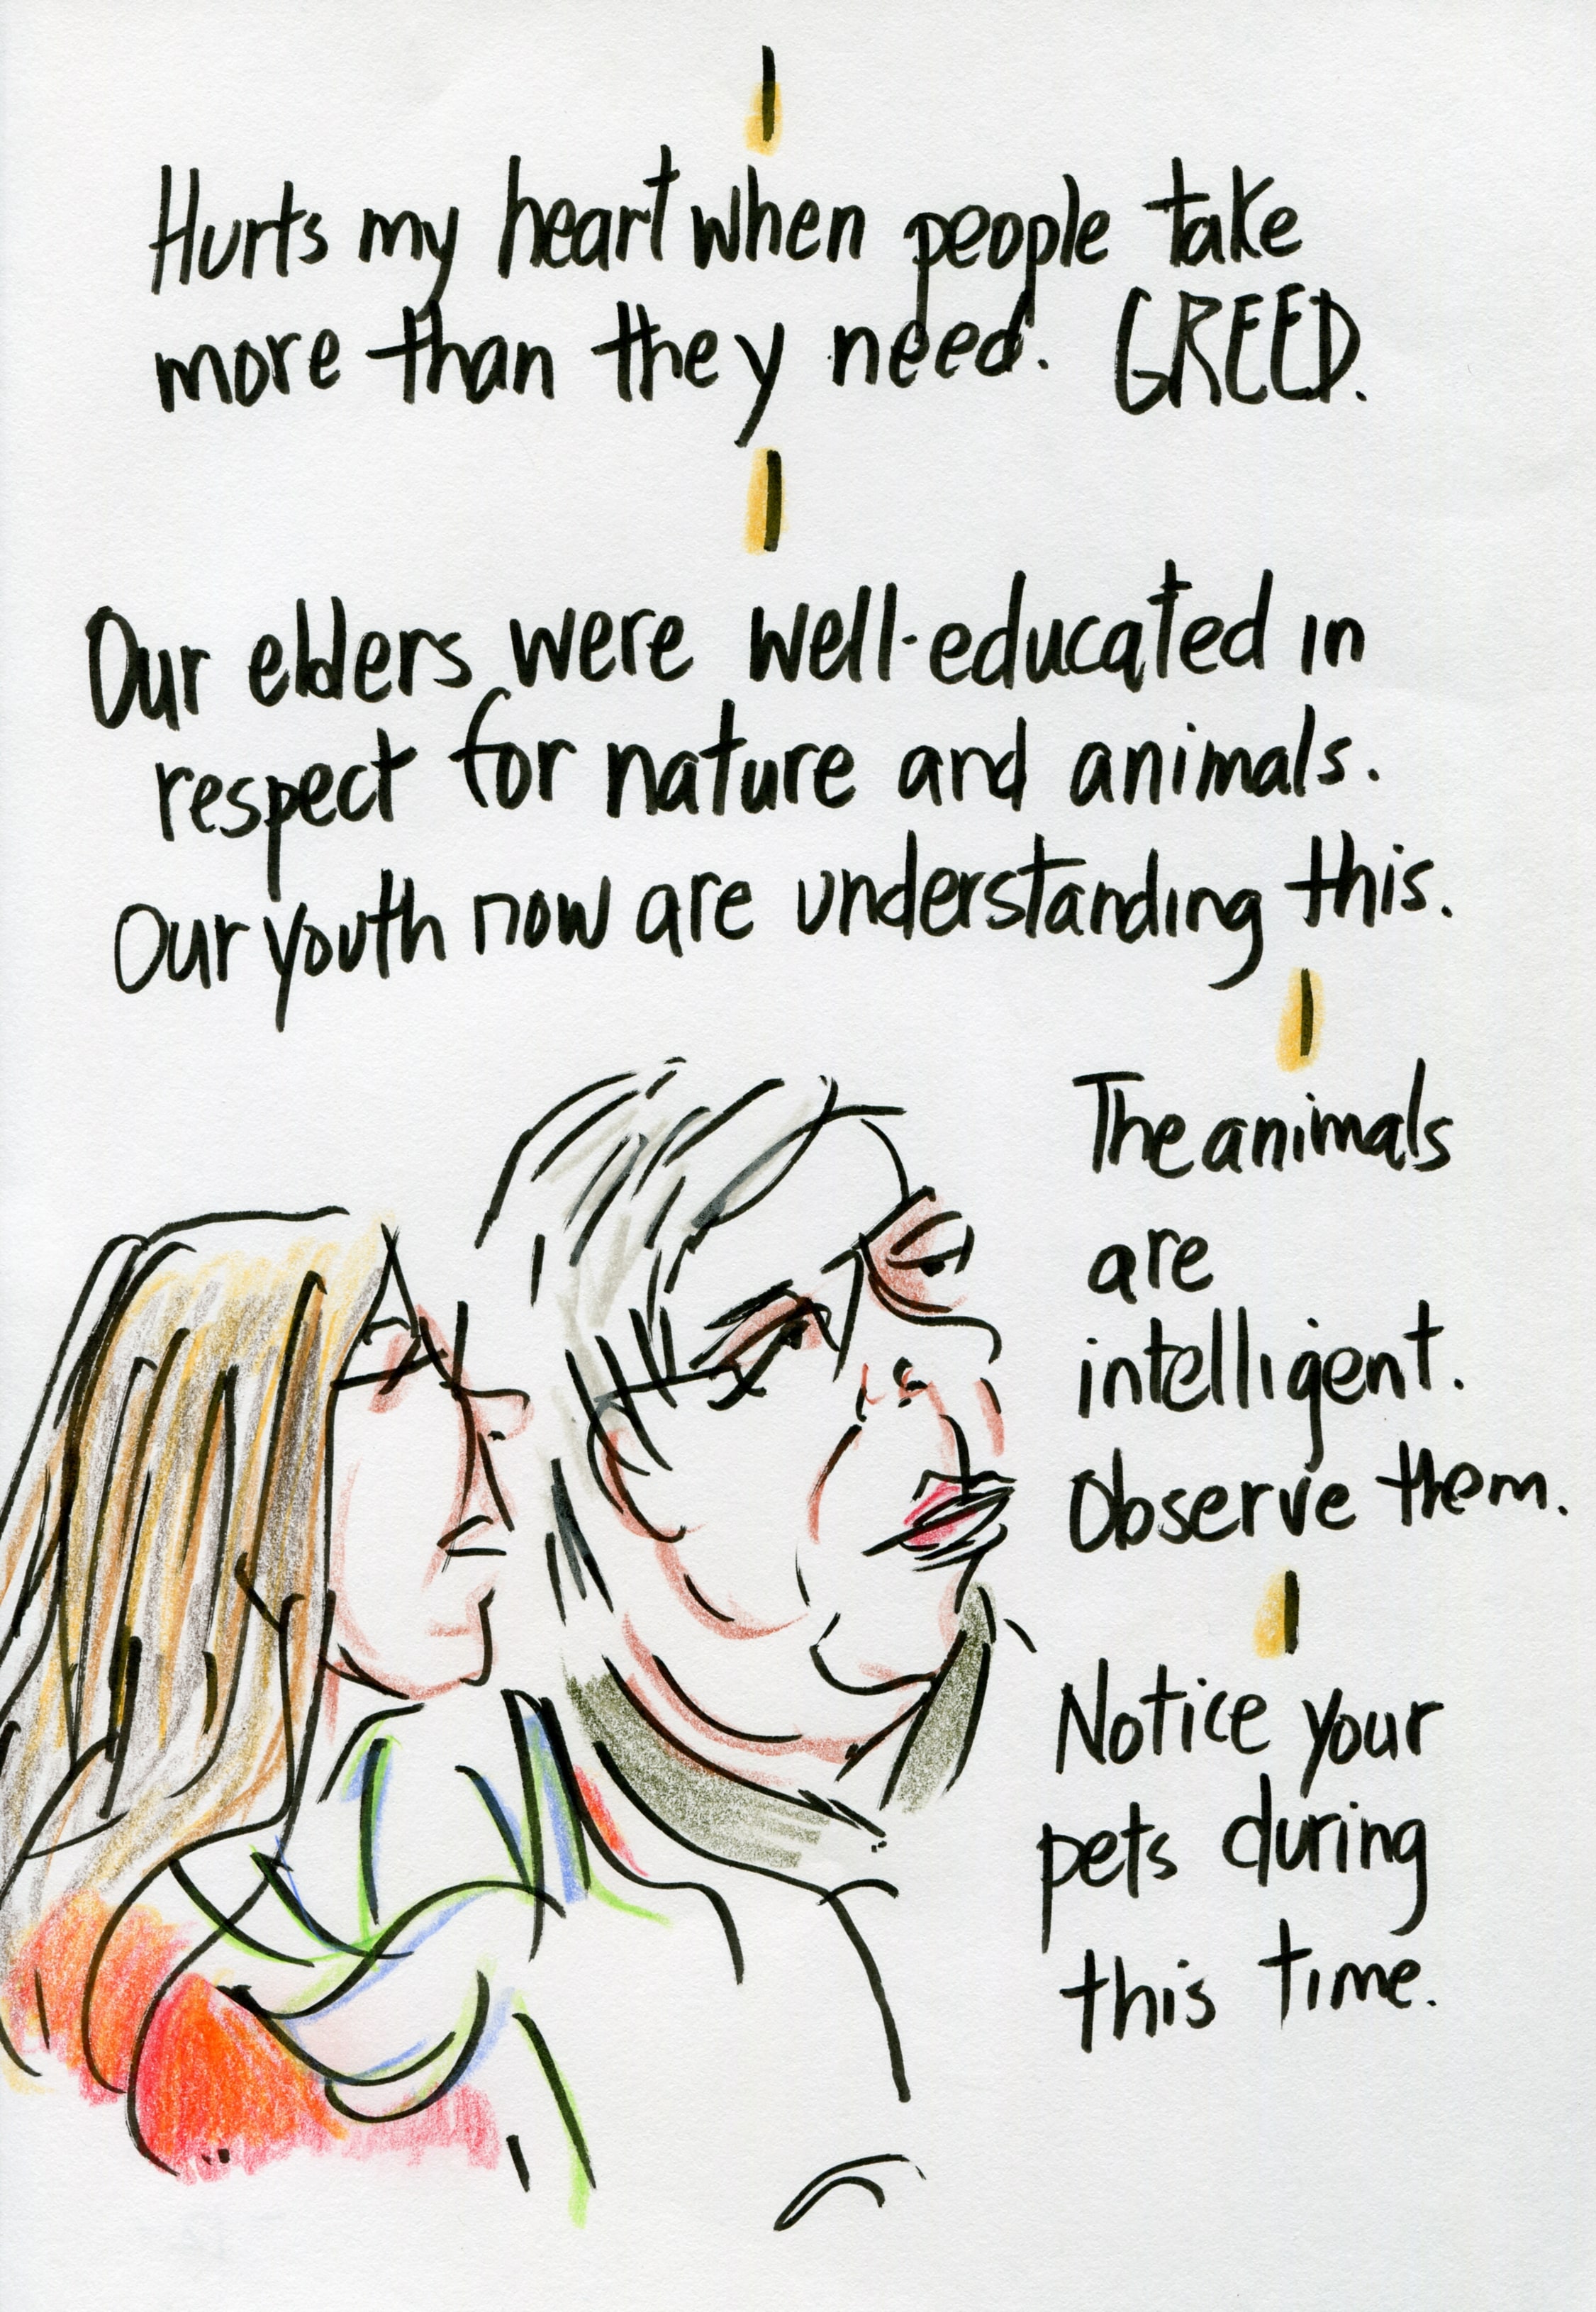 Hurts my heart when people take
more than they need. GREED.
Our elders were well-educated in
respect for nature and animals.
Our youth now are understanding this.
The animals
are
intelligent.
Observe them.
Notice your
pets during
this time.